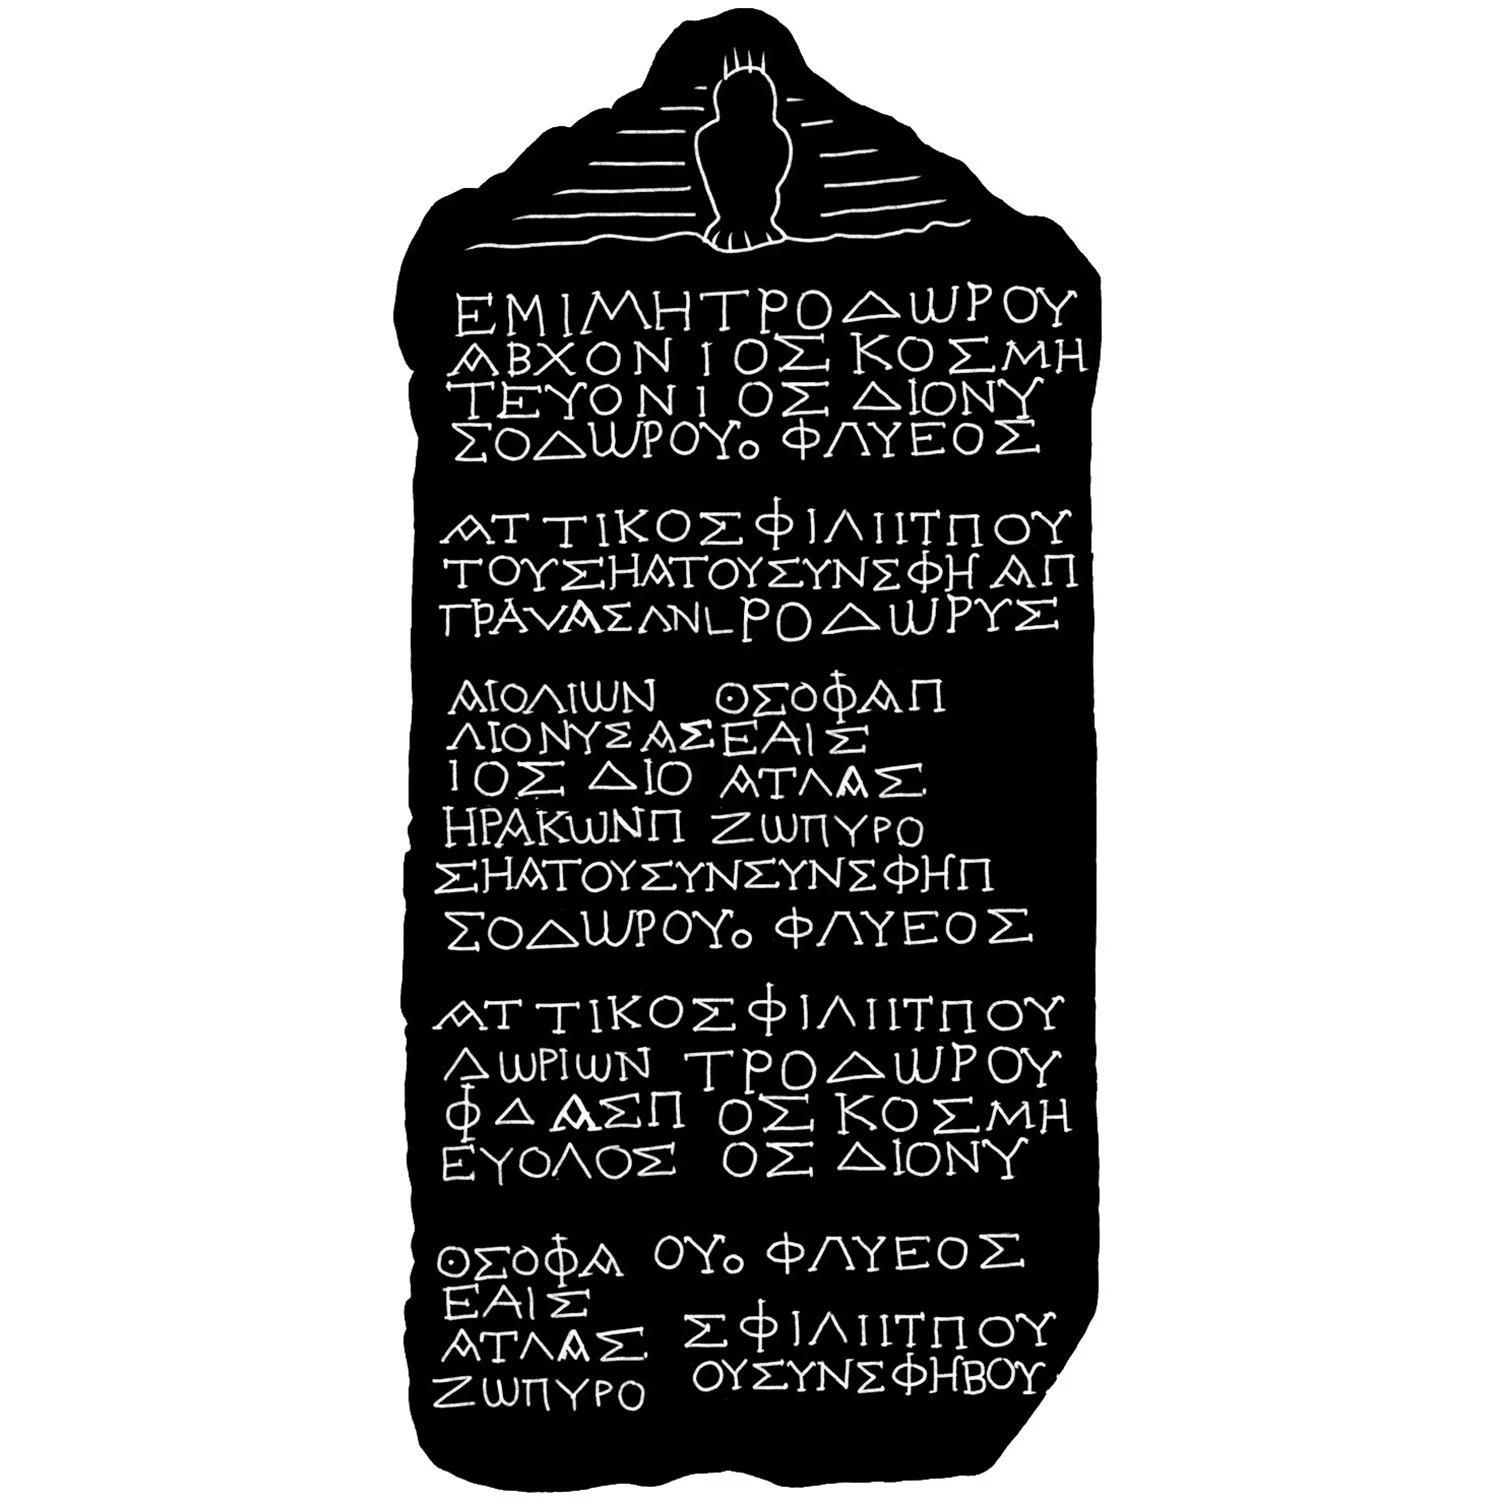 ΕΜΙΜΗΤΡΟΔωΡΟΥ
ΑΒΧΟΝΙΟΣ ΚΟΣΜΗ
ΤΕΥΟΝΙΟΣ ΔΙΟΝΥ
ΣΟΔωΡΟΥο ΦΛΥΕΟΣ
ΑΤΤΙΚΟΣΦΙΛΙΙΤΠΟΥ
ΤΟΥΣΗΑΤΟΥΣΥΝΣΦΗ ΑΠ
ΓΡΑVΑΣΛΝLΡΟΔωΡΥΣ
ΑΙΟΛΙωΝ ΘΣΟΦΑΠ
ΛΙΟΝΥΣΑΣΕΑΙΣ
ΙΟΣ ΔΙΟ ΑΤΛΑΣ
ΗΡΑΚωΝΠ ΖωΠΥΡΟ
ΣΗΑΤΟΥΣΥΝΣΥΝΣΦΗΠ
ΣΟΔωΡΟΥο ΦΛΥΕΟΣ
ΑΤΤΙΚΟΣΦΙΛΙΙΤΠΟΥ
ΔωΡΙωΝ ΤΡΟΔωΡΟΥ
ΦΔΑΣΠ ΟΣ ΚΟΣΜΗ
ΕΥΟΛΟΣ ΟΣ ΔΙΟΝΥ
ΘΣΟΦΑ ΟΥο ΦΛΥΕΟΣ
ΕΑΙΣ
ΑΤΛΑΣ ΣΦΙΛΙΙΤΠΟΥ
ΖωΠΥΡΟ ΟΥΣΥΝΣΦΗΒΟΥ